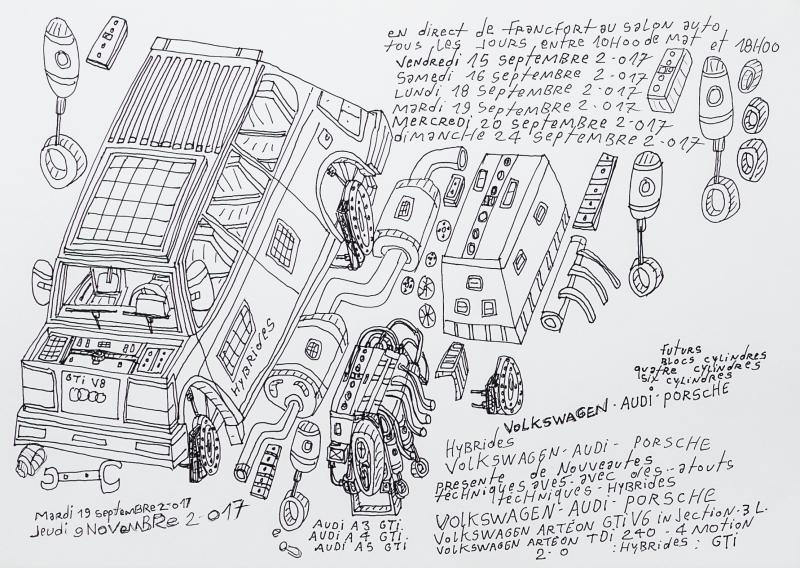 en direct de Francfort au salon auto
tous les jours entre 10H00 de mat et 18H00
Vendredi 15 septembre 2.017
Samedi 16 septembre 2.017
Lundi 18 septembre 2.017
Mardi 19 septembre 2.017
Mercredi 20 septembre 2.017
Dimanche 24 septembre 2.017
GTi V8
HYBRIDES
Futurs
Blocs cylindres
quatre cylindres
six cylindres
VOLKSWAGEN. AUDI. PORSCHE
HYBRIDES
VOLKSWAGEN-AUDI- PORSCHE
présente de Nouveautes
techniques aves-avec des-atouts
techniques-HYBRIDES
VOLKSWAGEN-AUDI-PORSCHE
VOLKSWAGEN ARTEON GTi V6 inJection.3L.
VOLKSWAGEN ARTEON TDi 240.4 MOTION
2.0 :HYBRIDES: GTi
Mardi 19 septembre 2.017
Jeudi 9 NOVEMBRE 2.017
AUDI A3 GTi.
AUDI A4 GTi.
AUDI A5 GTi